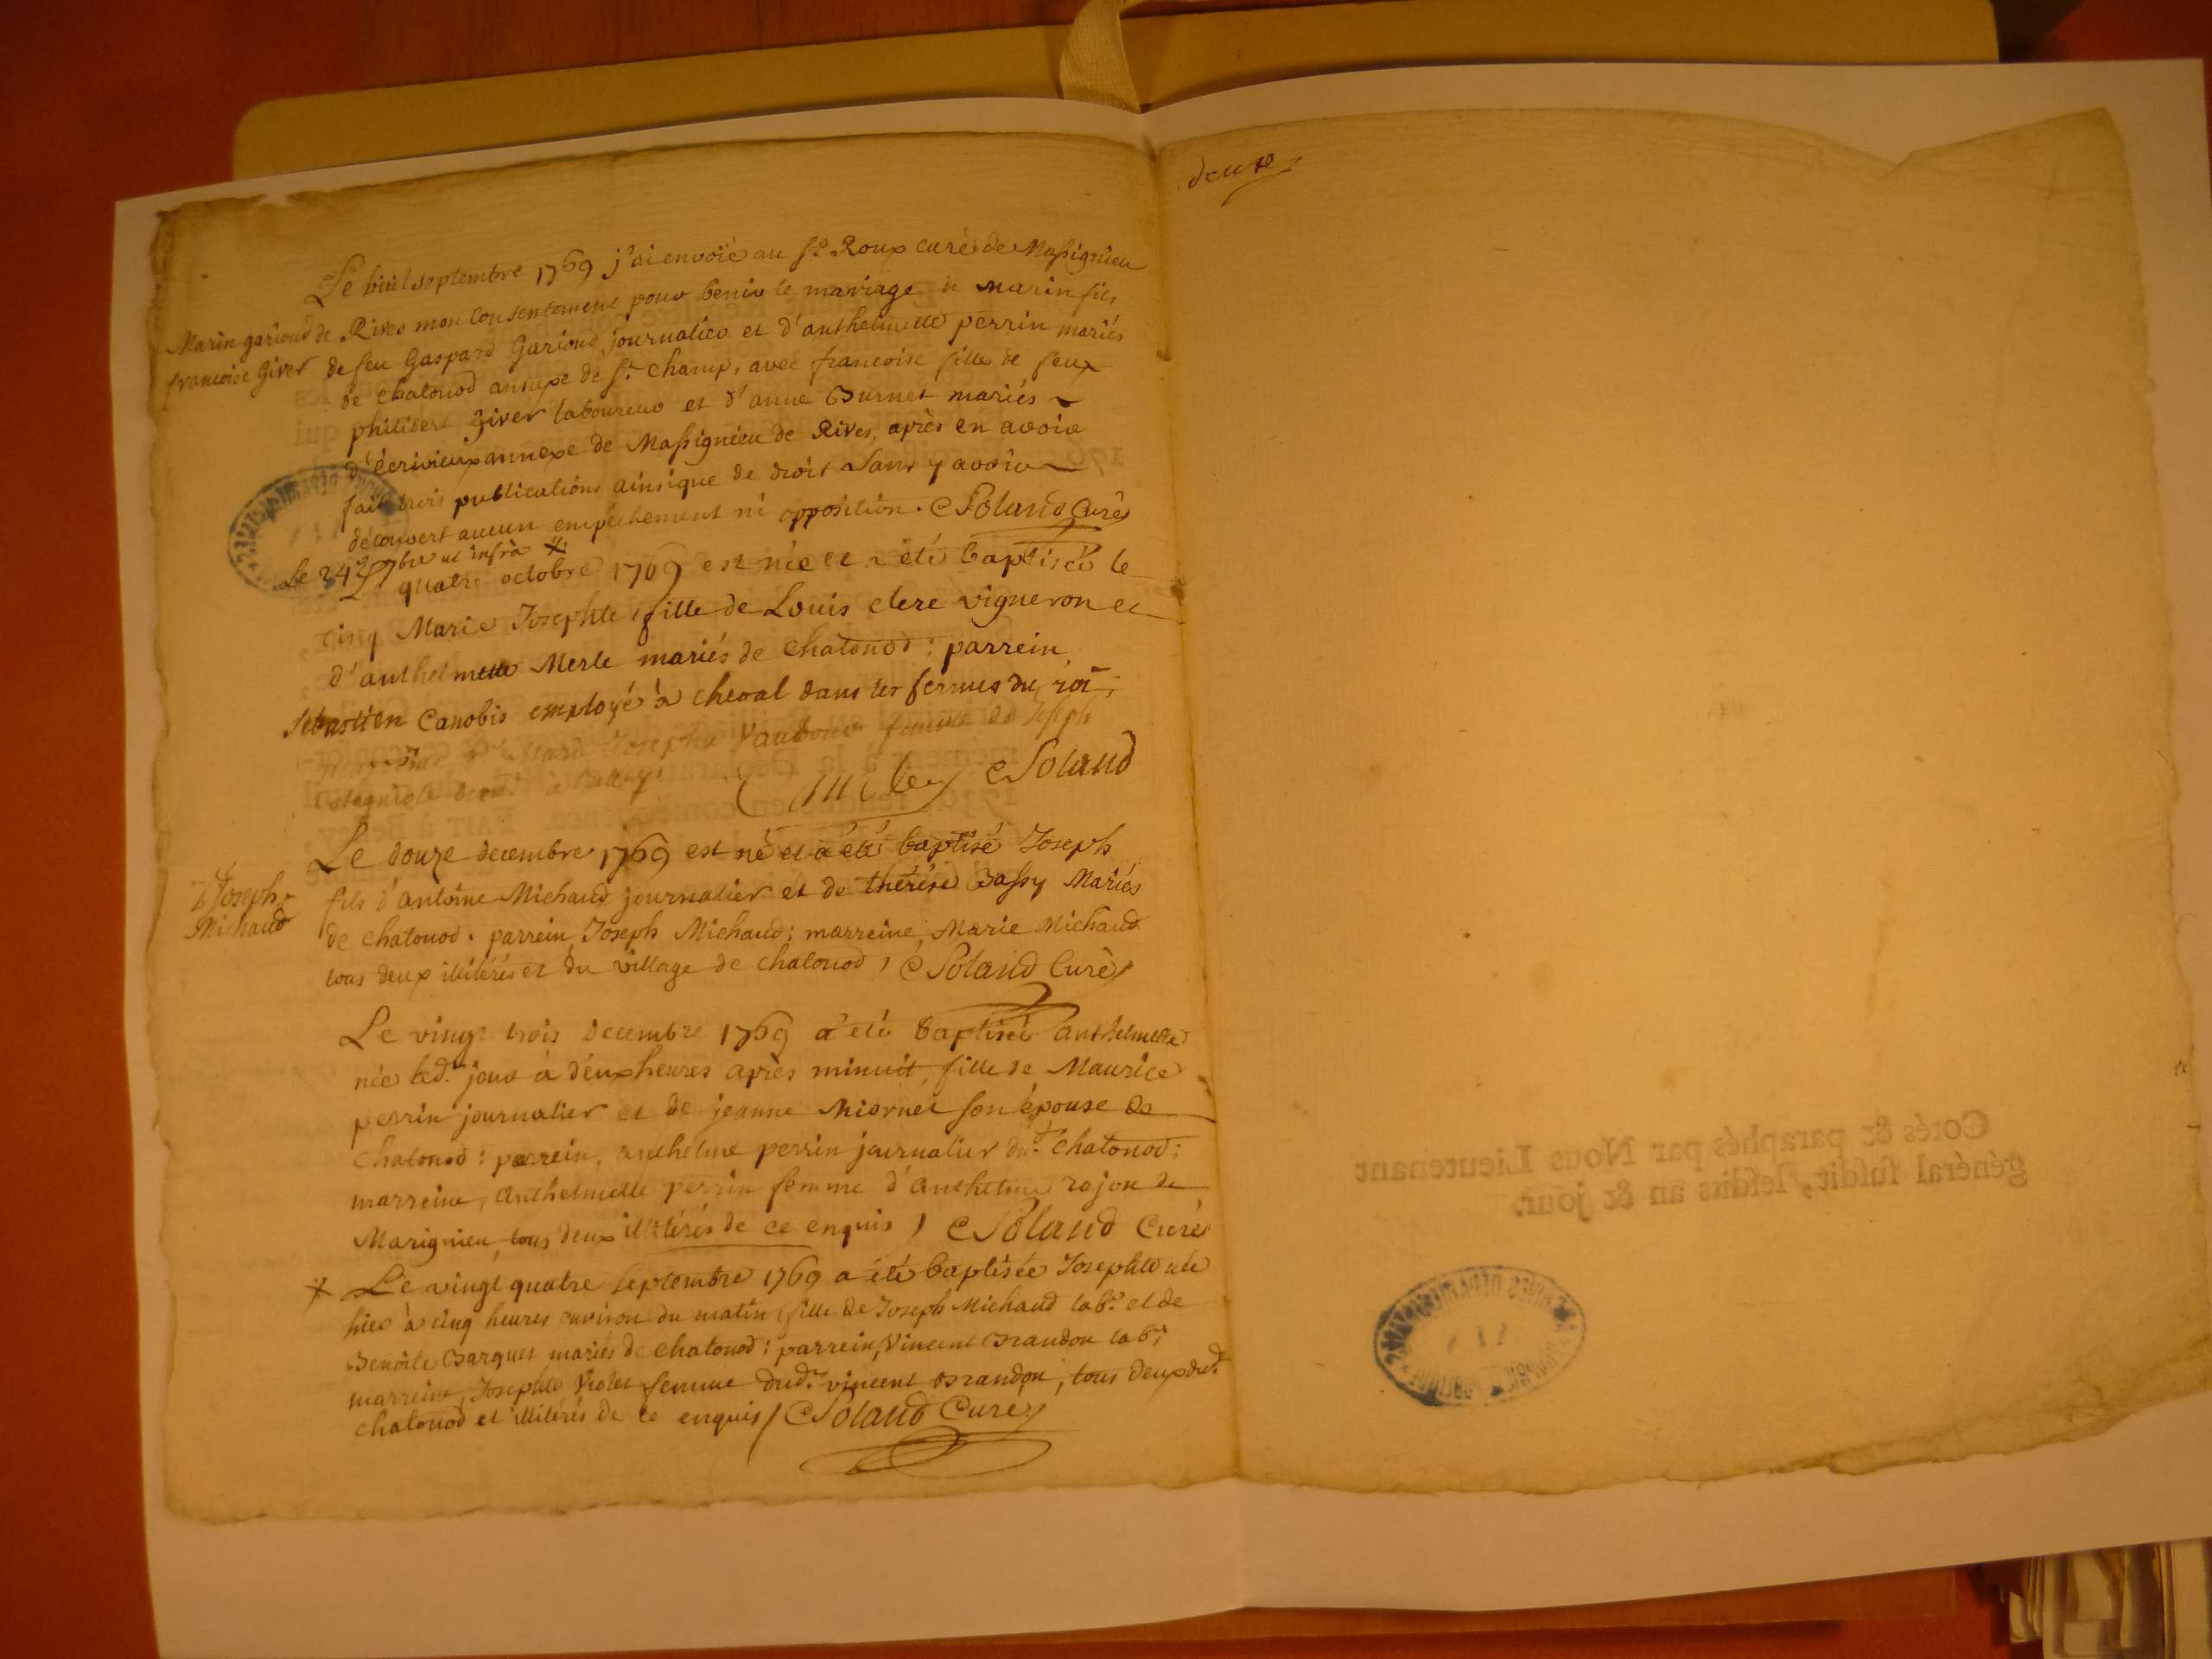 deux
Le huit septembre 1769 j'ai envoïé au Sr. Roux curé de Massignieu
Marin garioud
françoise Giver
de Rives mon consentement pour benir le mariage de marin fils
de feu Gaspard Garioud journalier et d'anthelmette perrin mariés
de chatonod annexe de St. Champ, avec francoise fille de feux
philibert Giver laboureur et d'anne Burnet mariés
d'écrivieux annexe de Massignieu de Rives, après en avoir
fait trois publications ainsi que de droit sans y avoir
découvert aucun empêchement ni opposition. Poland Curé
Le 24 7bre ut infrà
quatre octobre 1769 est née et a été baptisée le
cinq Marie Josephte fille de Louis clerc vigneron et
d'anthelmette Merle mariés de chatonod : parrein,
sebastien Canobis employé à cheval dans les fermes du roi ;
Josephte femme de Joseph
Poland
Le douze decembre 1769 est né et a été baptisé Joseph
Joseph
Michaud
fils d'antoine Michaud journalier et de thérèse Bassy Mariés
de chatonod. parrein, Joseph Michaud ; marreine, Marie Michaud
tous deux illitérés et du village de chatonod / Poland Curé
Le vingt trois decembre 1769 a été Baptisée anthelmette
née led. jour à deux heures après minuit, fille de Maurice
perrin journalier et de jeanne son épouse de
chatonod : parrein, anthelme perrin journalier dud. chatonod ;
marreine, anthelmette perrin femme d'anthelme rajon de
Marignieu, tous deux illitérés de ce enquis / Poland Curé
Le vingt quatre septembre 1769 a été baptisée Josephte née
hier à cinq heures environ du matin fille de Joseph Michaud labr. et de
Benoite Barquet mariés de chatonod : parrein, Vincent Brandon labr.
marreine, Josephte Violet femme dudt. vincent Brandon, tous deux dudt.
chatonod et illitérés de ce enquis / Poland Curé
Cotés & paraphés par Nous Lieutenant
général susdit, lesdits an & jour.